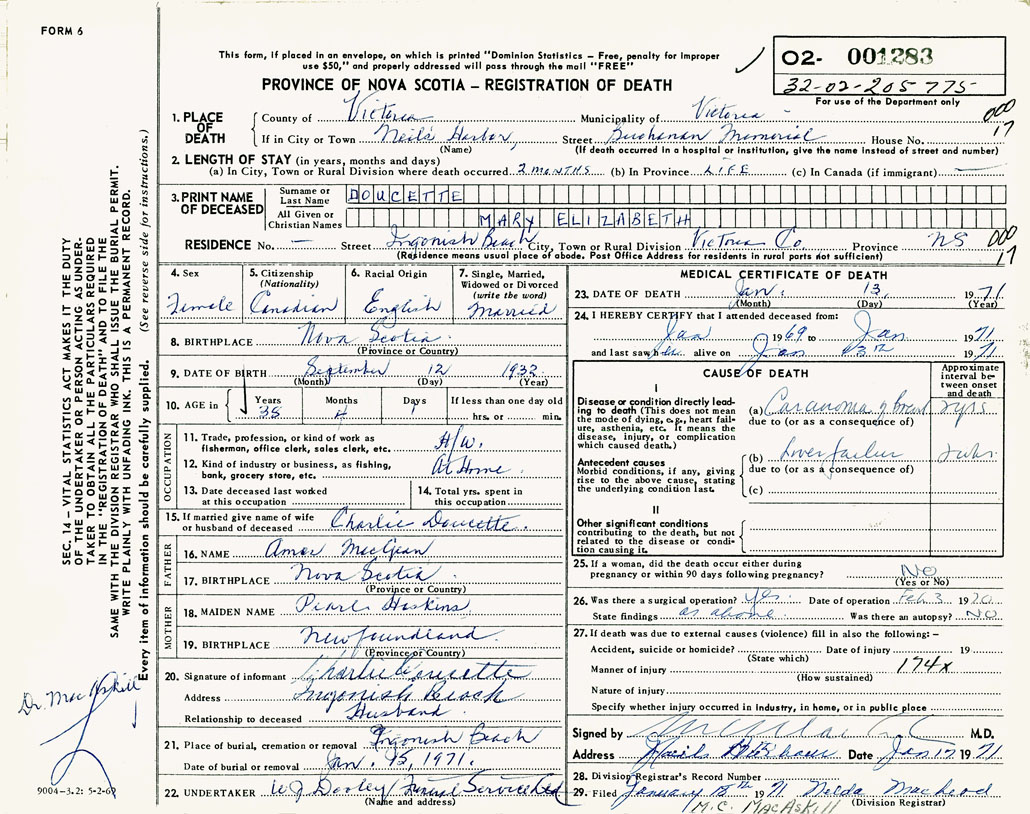 FORM 6
This form, if placed in an envelope, on which is printed "Dominion Statistics – Free, penalty for improper
use $50," and properly addressed will pass through the mail "FREE"
02- 001283
32-02-205775
For use of the Department only
PROVINCE OF NOVA SCOTIA – REGISTRATION OF DEATH
1. PLACE OF DEATH
County of Victoria Municipality of Victoria
000
17
If in City or Town Neils Harbor, Street Buchanan Memorial House No.
(Name) (If death occurred in a hospital or institution, give the name instead of street and number)
2. LENGTH OF STAY (in years, months and days)
(a) In City, Town or Rural Division where death occurred 2 MONTHS (b) In Province LIFE (c) In Canada (if immigrant) —
3. PRINT NAME OF DECEASED
Surname or Last Name DOUCETTE
All Given or Christian Names MARY ELIZABETH
RESIDENCE No. — Street Ingonish Beach City, Town or Rural Division Victoria Co. Province NS
000
17
(Residence means usual place of abode. Post Office Address for residents in rural parts not sufficient)
4. Sex Female
5. Citizenship (Nationality) Canadian
6. Racial Origin English
7. Single, Married, Widowed or Divorced (write the word) Married
8. BIRTHPLACE Nova Scotia
(Province or Country)
9. DATE OF BIRTH September 12 1932
(Month) (Day) (Year)
10. AGE in Years 38 Months 4 Days 1 If less than one day old
hrs. or min.
OCCUPATION
11. Trade, profession, or kind of work as fisherman, office clerk, sales clerk, etc. H/W.
12. Kind of industry or business, as fishing, bank, grocery store, etc. At Home
13. Date deceased last worked at this occupation
14. Total yrs. spent in this occupation
15. If married give name of wife or husband of deceased Charlie Doucette.
FATHER
16. NAME Amos
17. BIRTHPLACE Nova Scotia
(Province or Country)
MOTHER
18. MAIDEN NAME Pearl Hoskins
19. BIRTHPLACE Newfoundland.
(Province or Country)
20. Signature of informant Charlie Doucette
Address Ingonish Beach
Relationship to deceased Husband
21. Place of burial, cremation or removal Ingonish Beach
Date of burial or removal Jan. 15, 1971.
22. UNDERTAKER W J Dooley Funeral Service Ltd
(Name and address)
MEDICAL CERTIFICATE OF DEATH
23. DATE OF DEATH Jan. 13, 1971
(Month) (Day) (Year)
24. I HEREBY CERTIFY that I attended deceased from:
Jan 1969 to Jan 1971
and last saw h alive on Jan 13th 1971
CAUSE OF DEATH
Approximate interval between onset and death
I
Disease or condition directly leading to death (This does not mean the mode of dying, e.g., heart failure, asthenia, etc. It means the disease, injury, or complication which caused death.)
(a) Carcinoma of breast 2 yrs
due to (or as a consequence of)
Antecedent causes
Morbid conditions, if any, giving rise to the above cause, stating the underlying condition last.
(b) Liver failure
due to (or as a consequence of)
(c)
II
Other significant conditions
contributing to the death, but not related to the disease or condition causing it.
25. If a woman, did the death occur either during pregnancy or within 90 days following pregnancy? NO
(Yes or No)
26. Was there a surgical operation? Yes. Date of operation Feb 3 1970
State findings as above Was there an autopsy? NO
27. If death was due to external causes (violence) fill in also the following:–
Accident, suicide or homicide? Date of injury 19
(State which)
Manner of injury 174x
(How sustained)
Nature of injury
Specify whether injury occurred in industry, in home, or in public place
Signed by M.D.
Address Neils Harbour Date Jan 17 1971
28. Division Registrar's Record Number
29. Filed January 18th 1971 Nelda MacLeod
M.C. MACASKILL (Division Registrar)
SEC. 14 – VITAL STATISTICS ACT MAKES IT THE DUTY
OF THE UNDERTAKER OR PERSON ACTING AS UNDER-
TAKER TO OBTAIN ALL THE PARTICULARS REQUIRED
IN THE "REGISTRATION OF DEATH" AND TO FILE THE
SAME WITH THE DIVISION REGISTRAR WHO SHALL ISSUE THE BURIAL PERMIT.
WRITE PLAINLY WITH UNFADING INK. THIS IS A PERMANENT RECORD.
Every item of information should be carefully supplied. (See reverse side for instructions.)
Dr. MacAskill
9004-3.2: 5-2-69